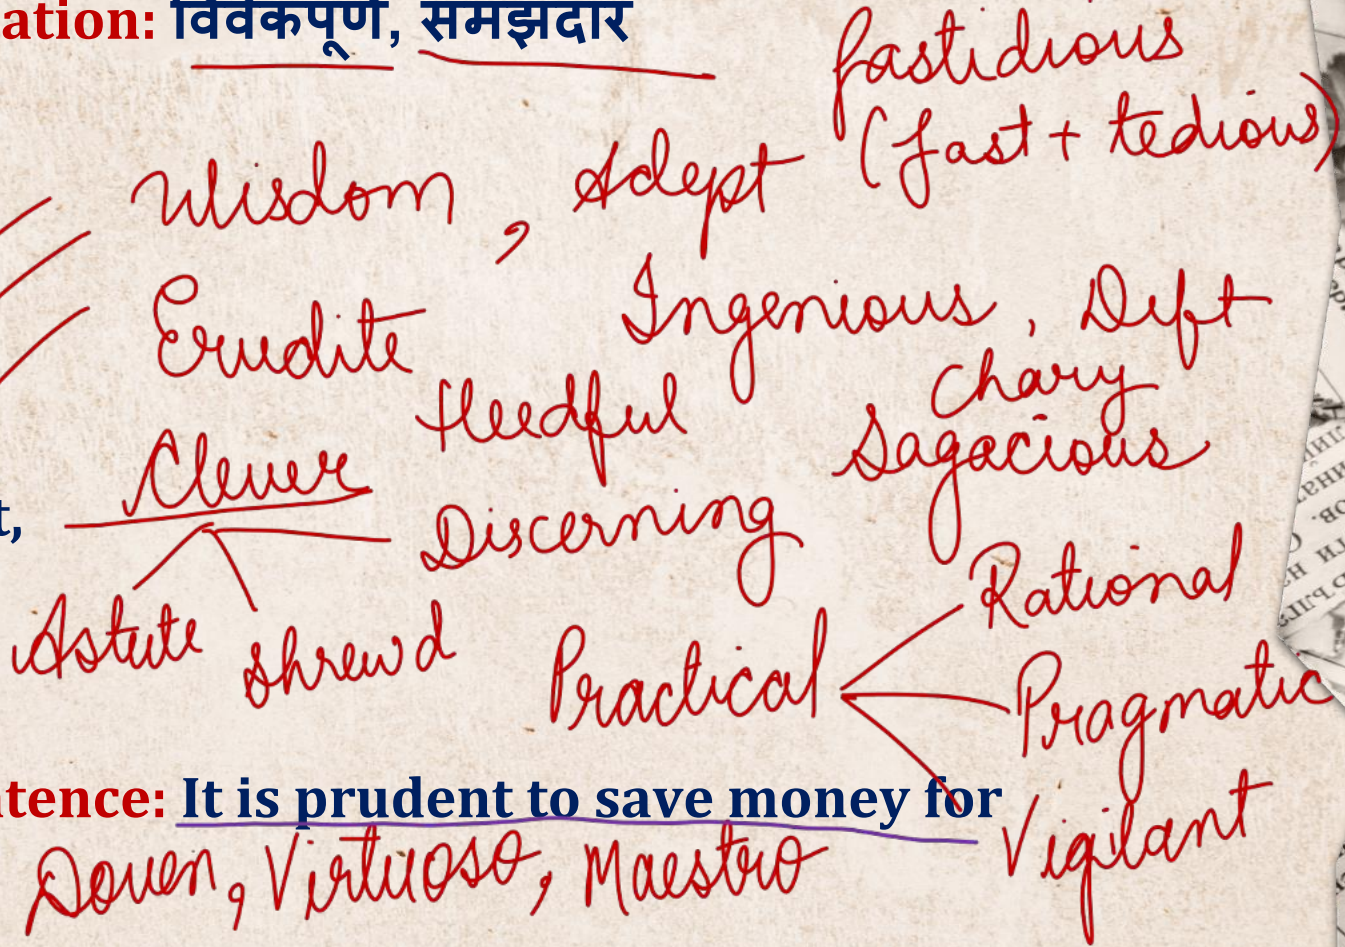 ation: विवेकपूर्ण, समझदार
fastidious
(fast + tedious)
Wisdom, Adept
Erudite
Ingenious, Deft
Heedful
Chary
Sagacious
Clever
t,
Discerning
Astute shrewd
Rational
Practical
Pragmatic
Vigilant
tence: It is prudent to save money for
Doven, Virtuoso, Maestro